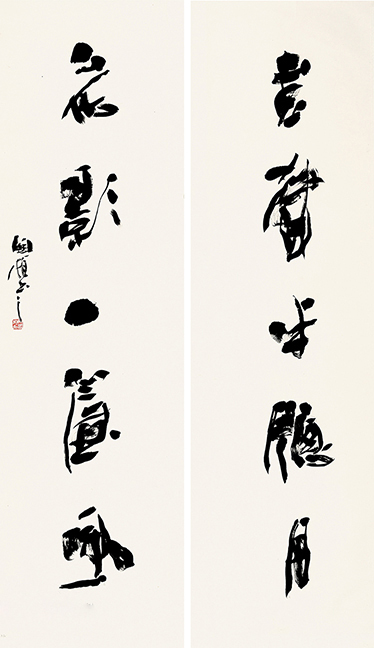 書聲半牕月
花影一簾風